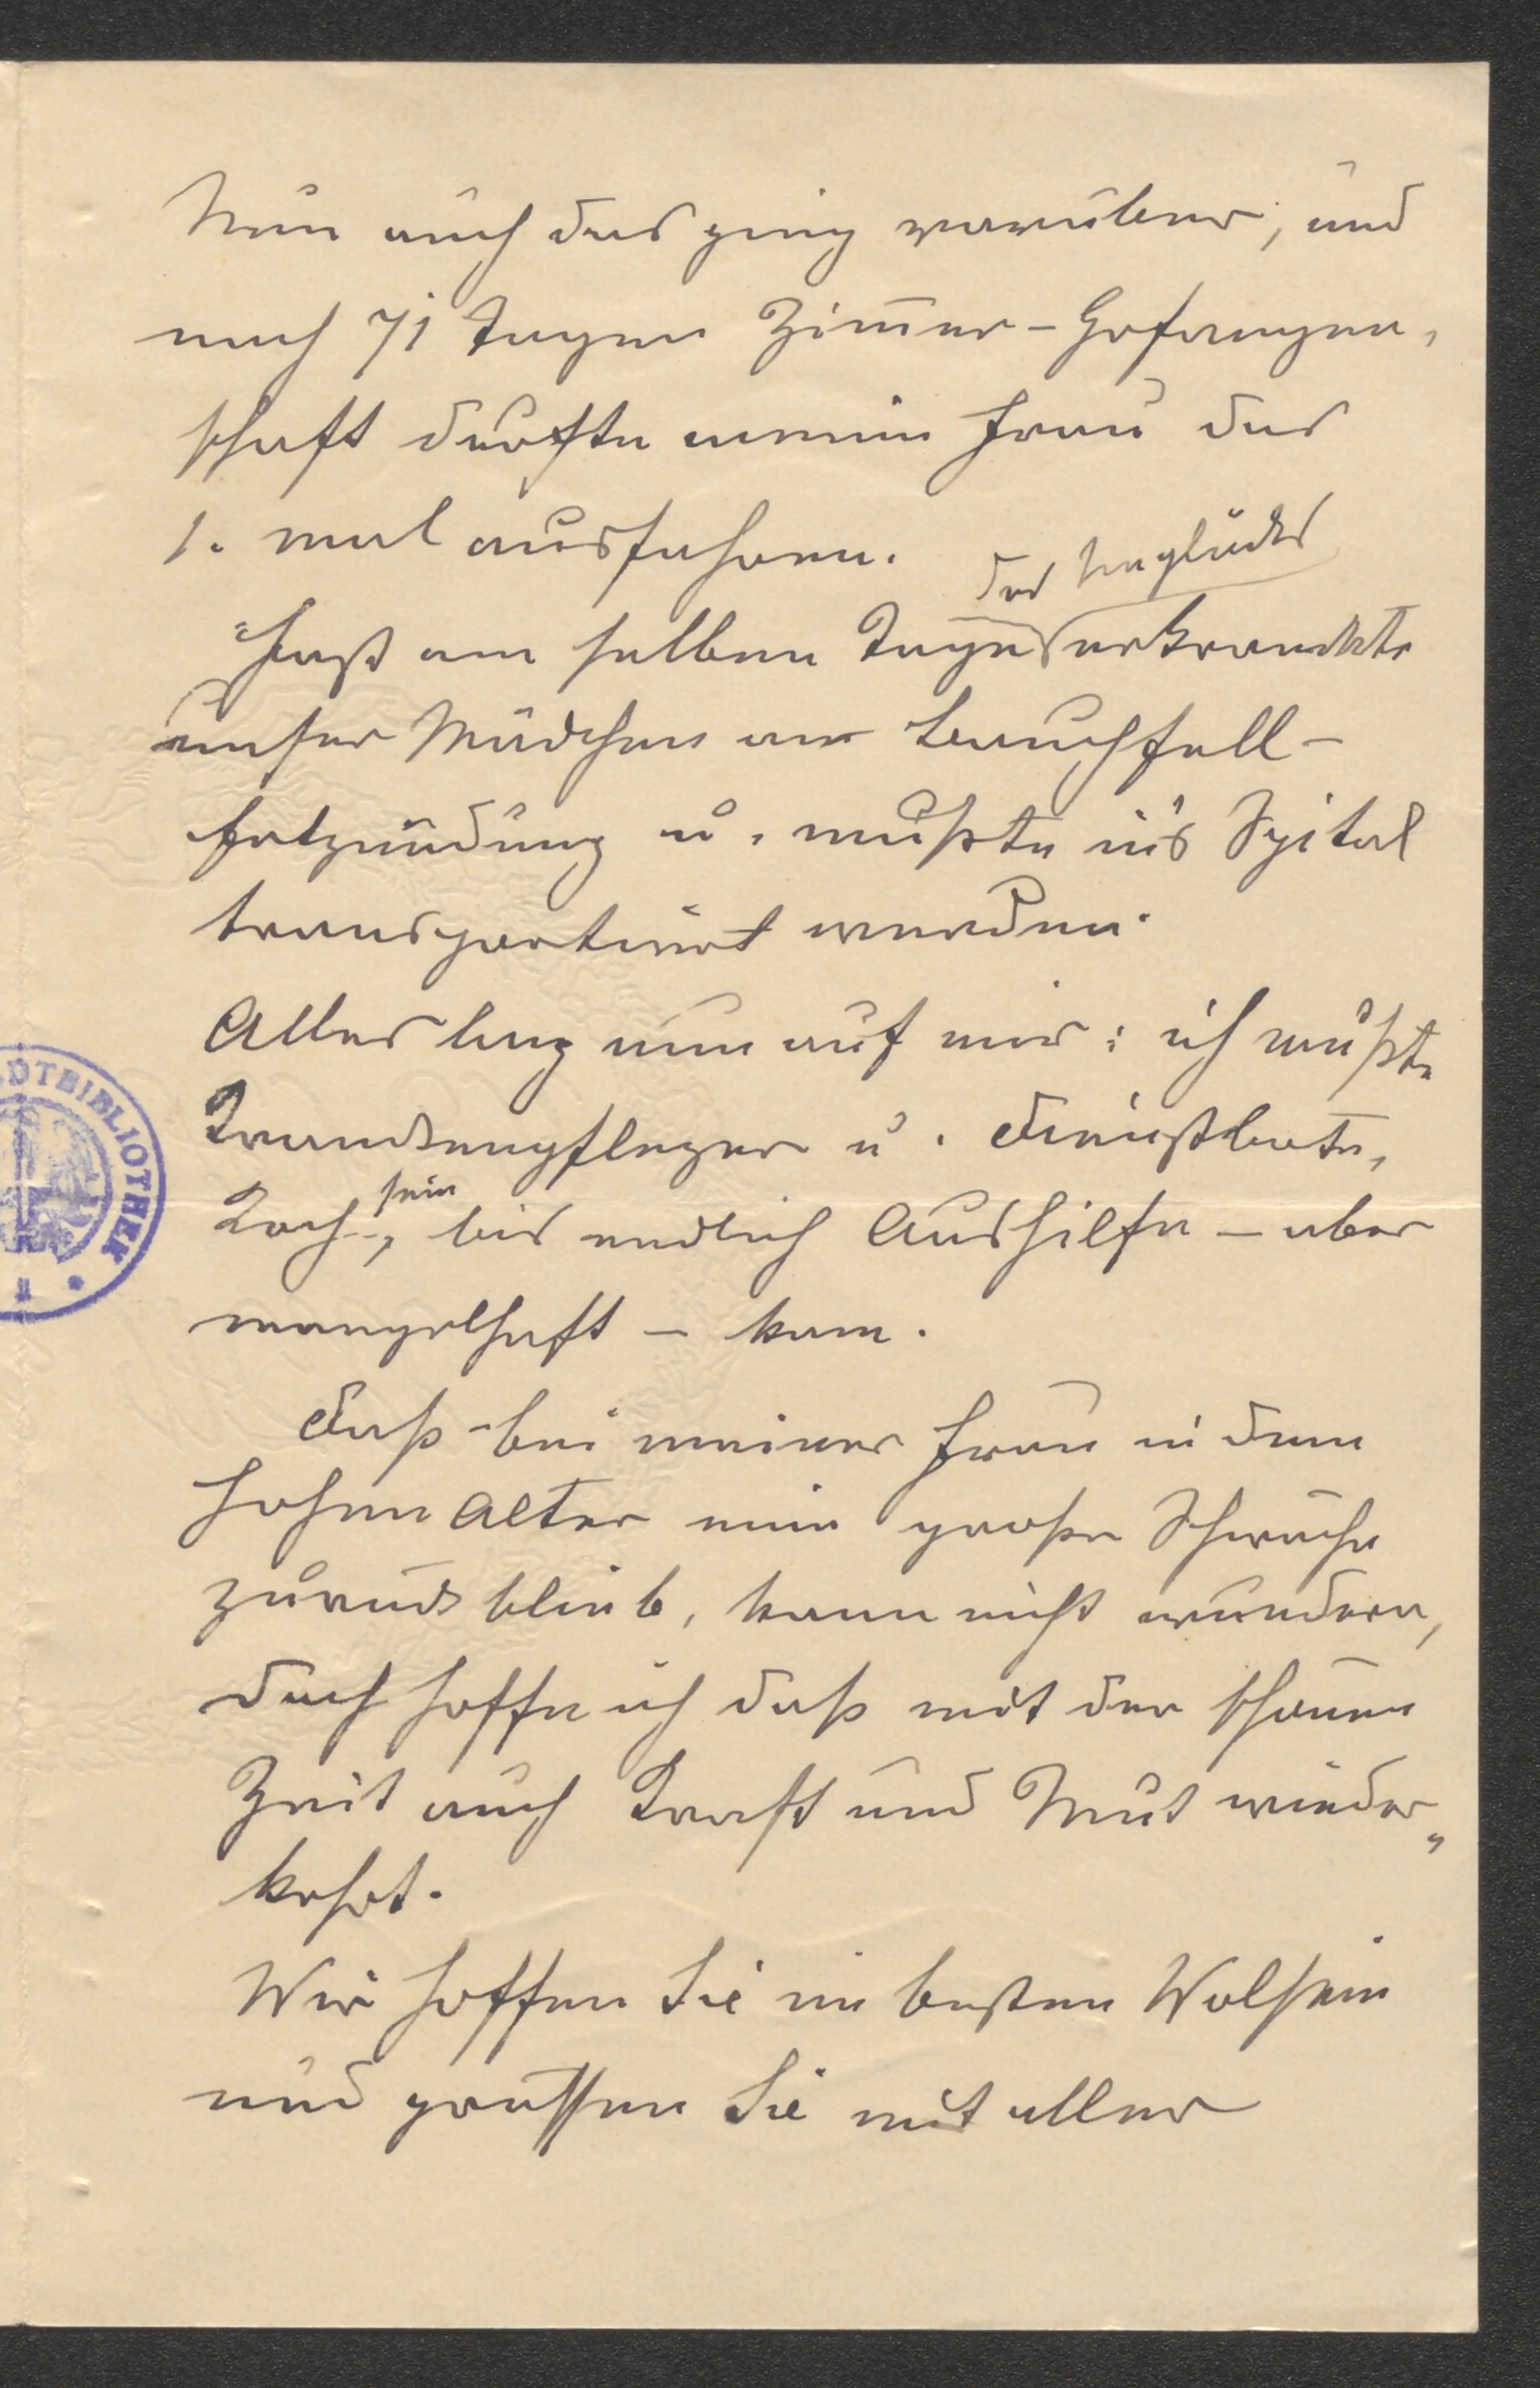 Nun auch das ging vorüber, und
nach 71 Tagen Zimmer-Gefangen-
schaft durfte meine Frau das
1. mal ausfahren.
des Unglückes
Fast am selben Tage erkrankte
unser Mädchen an Bauchfell-
entzündung u. mußte in's Spital
transportiert werden.
Alles lag nun auf mir: ich mußte
Krankenpfleger u. Dienstbote,
Koch sein, bis endlich Aushilfe – aber
mangelhaft – kam.
Daß bei meiner Frau in dem
hohen Alter eine große Schwäche
zurück blieb, kann nicht wundern,
doch hoffe ich daß mit der schönen
Zeit auch Kraft und Mut wieder-
kehrt.
Wir hoffen Sie im besten Wolsein
und grüssen Sie mit aller
DTBIBLIOTHEK